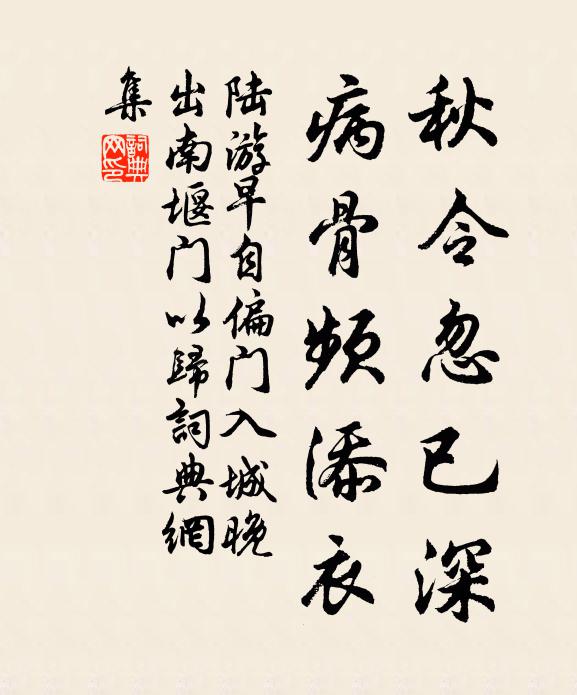 秋令忽已深
病骨频添衣
陆游早自偏门入城晚
出南堰门以歸詞典網
集
詞典
网印